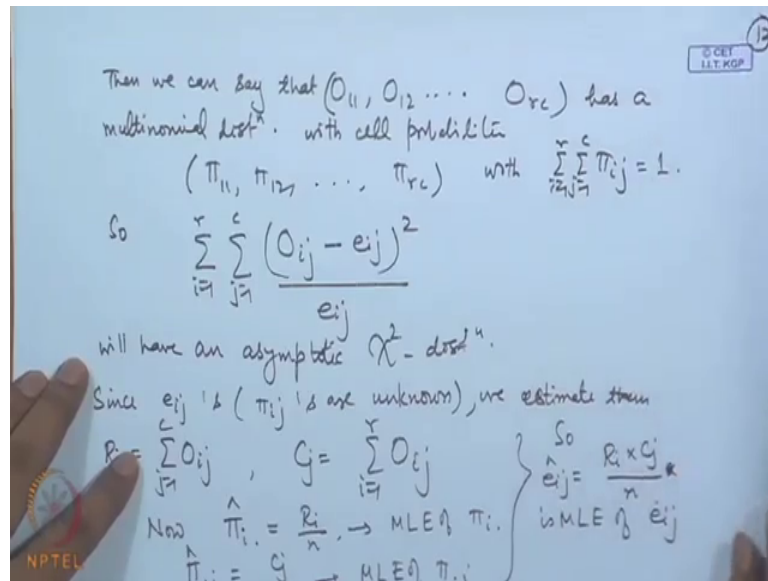 13
© CET
I.I.T. KGP
Then we can say that (O₁₁, O₁₂ .... O_rc) has a
multinomial distⁿ. with cell probabilities
(π₁₁, π₁₂, ..., π_rc) with Σ_{i=1}^{r} Σ_{j=1}^{c} π_ij = 1.
So Σ_{i=1}^{r} Σ_{j=1}^{c} (O_ij − e_ij)² / e_ij
will have an asymptotic χ² - distⁿ.
Since e_ij 's ( π_ij 's are unknown), we estimate them
R_i = Σ_{j=1}^{c} O_ij , C_j = Σ_{i=1}^{r} O_ij
Now π̂_i. = R_i / n → MLE of π_i.
π̂_.j = C_j → MLE of π_.j
So
ê_ij = R_i × C_j / n
is MLE of e_ij
NPTEL